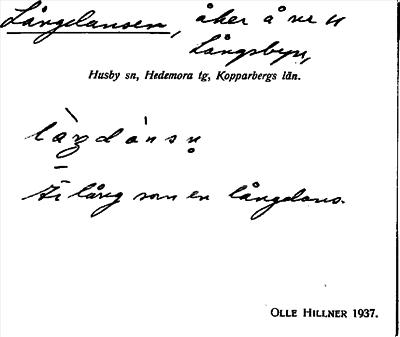 Långdansen, åker å nr 11
Långsbyn,
Husby sn, Hedemora tg, Kopparbergs län.
lång som en långdans.
OLLE HILLNER 1937.